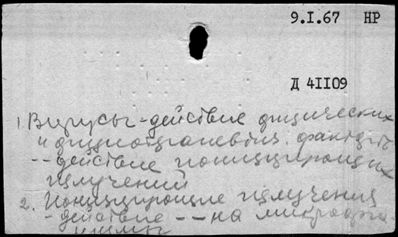 9.I.67 НР
Д 41109
1. Вирусы - действие физических
и физиотерапевтич. факторов
-- действие ионизирующих
излучений
2. Ионизирующие излучения
- действие -- на микроорга-
низмы